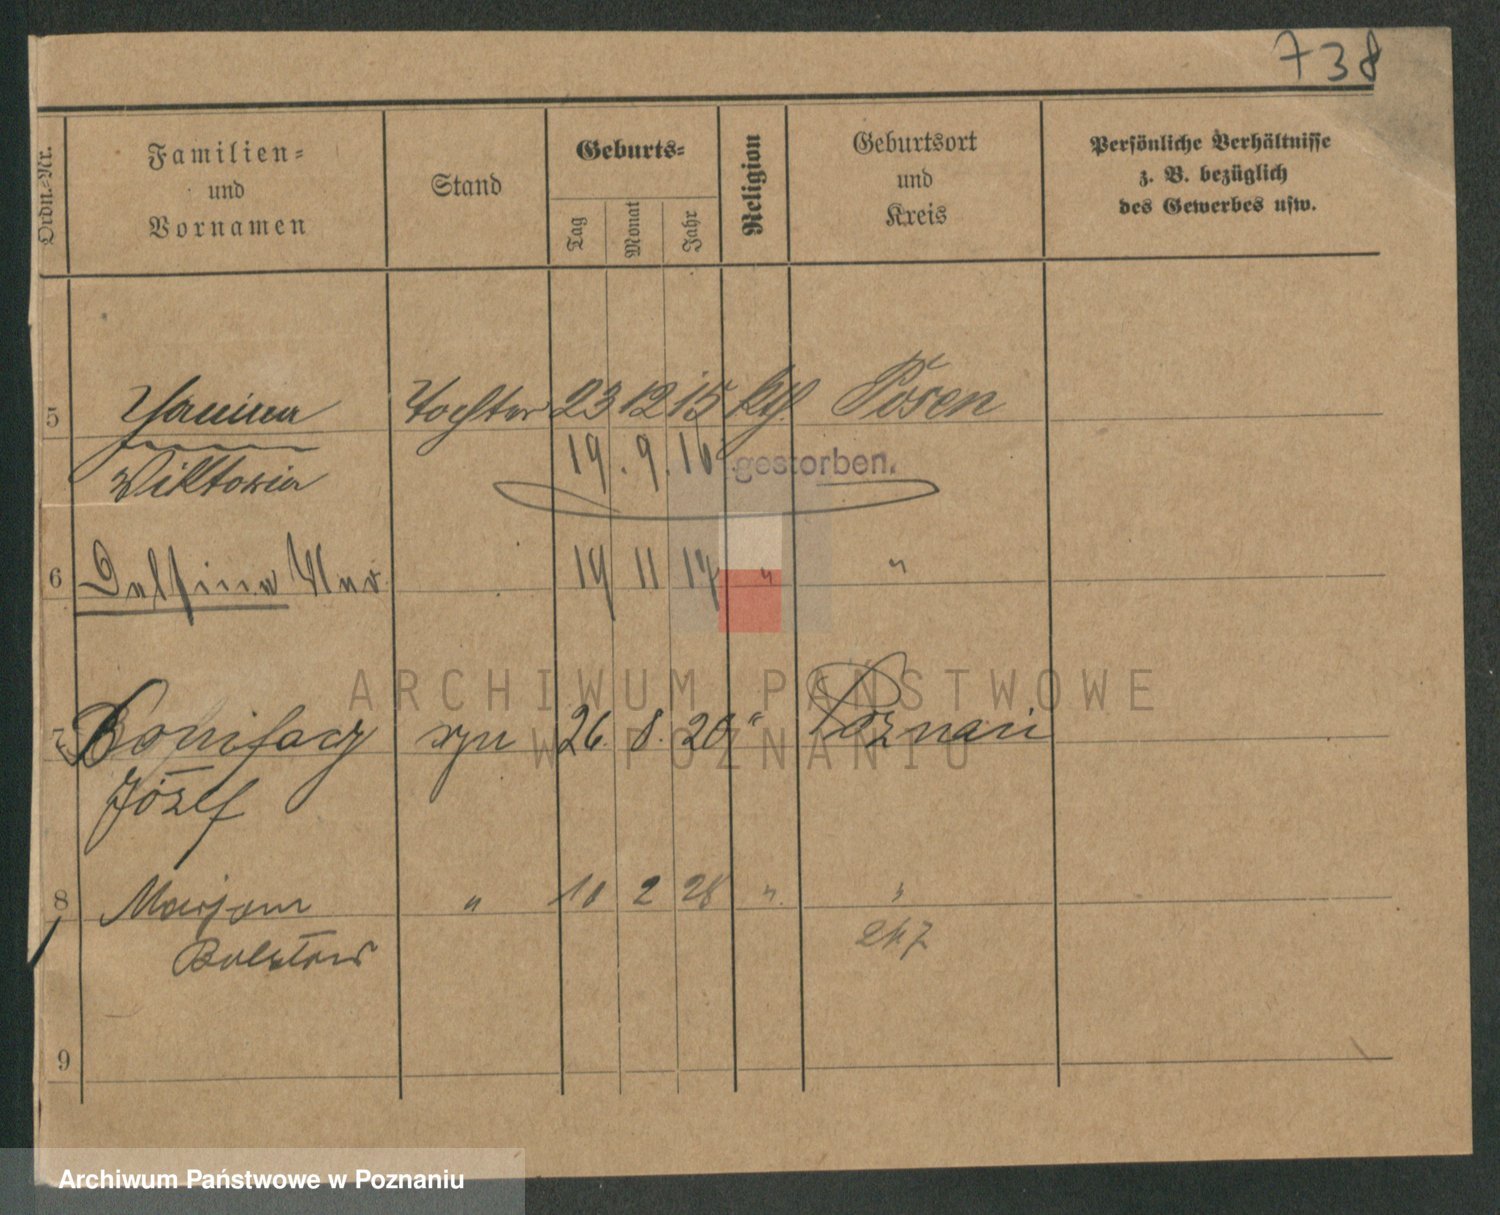 738
Ordn.-Nr.
Familien-
und
Vornamen
Stand
Geburts-
Tag
Monat
Jahr
Religion
Geburtsort
und
Kreis
Persönliche Verhältnisse
z. B. bezüglich
des Gewerbes usw.
5 Janina Tochter 23 12 15 kth. Posen
Wiktoria 19. 9. 16 gestorben.
6 Delfina 19 11 17 " "
ARCHIWUM PAŃSTWOWE
W POZNANIU
7 Bonifacy syn 26. 8. 20 " Poznań
Józef
8 Marjan " 10 2 28 " "
Bolesław
9
Archiwum Państwowe w Poznaniu